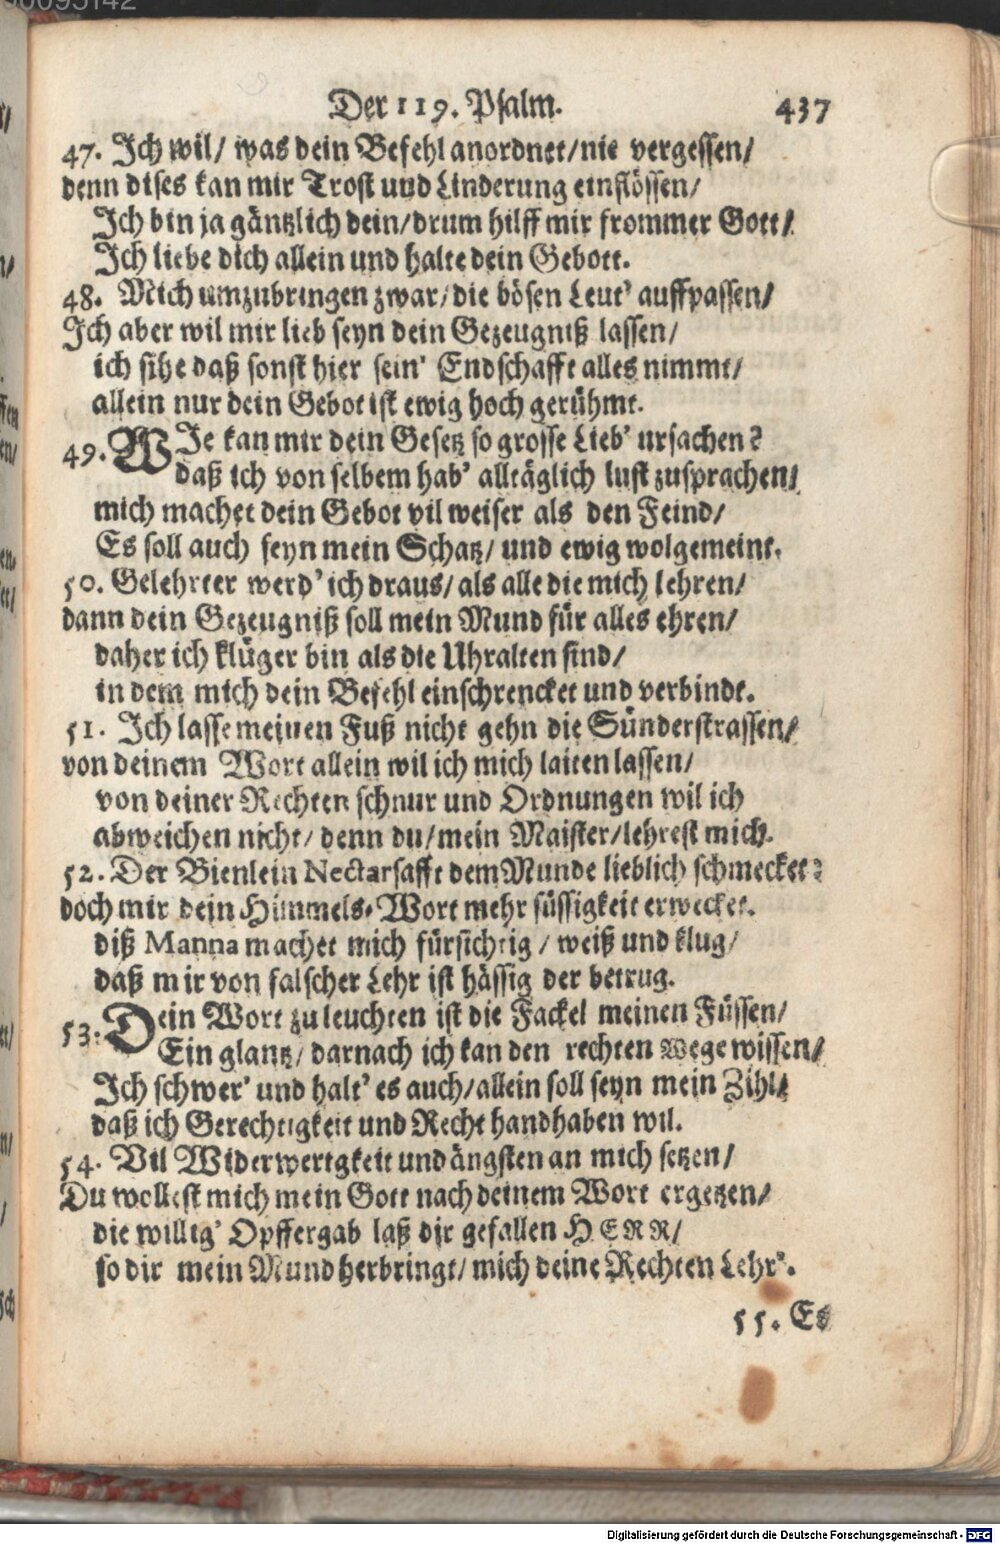 Der 119. Psalm. 437
47. Ich wil/ was dein Befehl anordnet/nie vergessen/
denn dises kan mir Trost und Linderung einflössen/
Ich bin ja gäntzlich dein/drum hilff mir frommer Gott/
Ich liebe dich allein und halte dein Gebott.
48. Mich umzubringen zwar/die bösen Leut' auffpassen/
Ich aber wil mir lieb seyn dein Gezeugniß lassen/
ich sihe daß sonst hier sein' Endschafft alles nimmt/
allein nur dein Gebot ist ewig hoch gerühmt.
49. WIe kan mir dein Gesetz so grosse Lieb' ursachen?
daß ich von selbem hab' alltäglich lust zusprachen/
mich machet dein Gebot vil weiser als den Feind/
Es soll auch seyn mein Schatz/ und ewig wolgemeint.
50. Gelehrter werd' ich draus/als alle die mich lehren/
dann dein Gezeugniß soll mein Mund für alles ehren/
daher ich klüger bin als die Uhralten sind/
in dem mich dein Befehl einschrencket und verbindt.
51. Ich lasse meinen Fuß nicht gehn die Sünderstrassen/
von deinem Wort allein wil ich mich laiten lassen/
von deiner Rechten schnur und Ordnungen wil ich
abweichen nicht/ denn du/mein Maister/lehrest mich.
52. Der Bienlein Nectarsafft dem Munde lieblich schmecket?
doch mir dein Himmels-Wort mehr süssigkeit erwecket.
diß Manna machet mich fürsichtig / weiß und klug/
daß mir von falscher Lehr ist hässig der betrug.
53. Dein Wort zu leuchten ist die Fackel meinen Füssen/
Ein glantz/ darnach ich kan den rechten wege wissen/
Ich schwer' und halt' es auch/allein soll seyn mein Zihl/
daß ich Gerechtigkeit und Recht handhaben wil.
54. Vil Widerwertgkeit und ängsten an mich setzen/
Du wollest mich mein Gott nach deinem Wort ergetzen/
die willig' Opffergab laß dir gefallen HERR/
so dir mein Mund herbringt/mich deine Rechten Lehr'.
55. Es
Digitalisierung gefördert durch die Deutsche Forschungsgemeinschaft - DFG